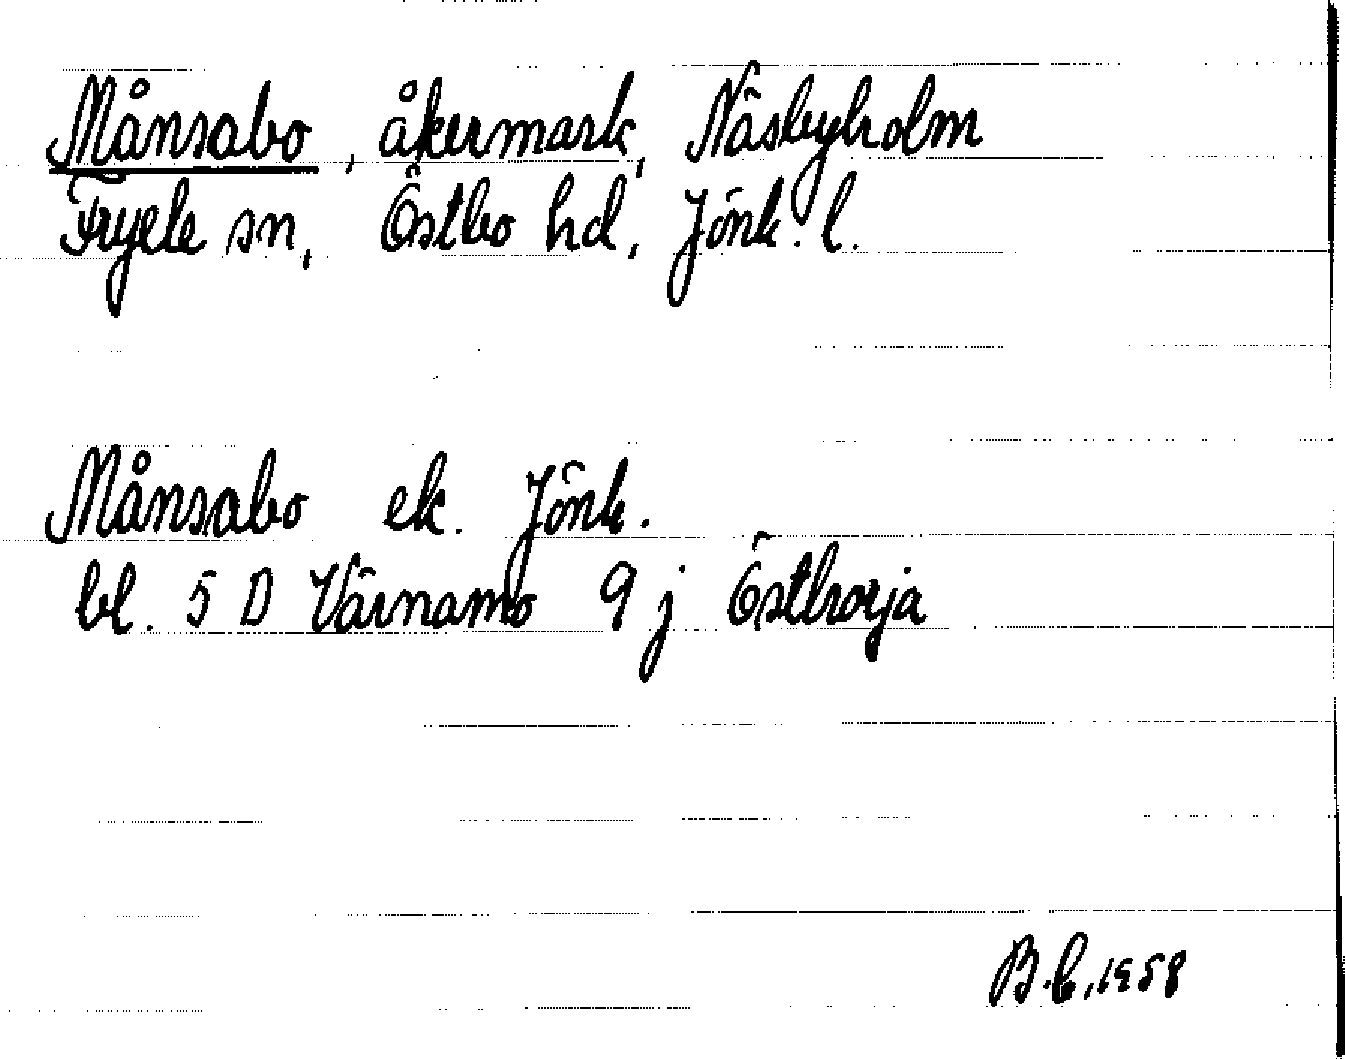 Månsabo, åkermark, Näsbyholm
Fryele sn, Östbo hd, Jönk. l.
Månsabo ek. Jönk.
bl. 5 D Värnamo 9 j Östhorja
B.C, 1958